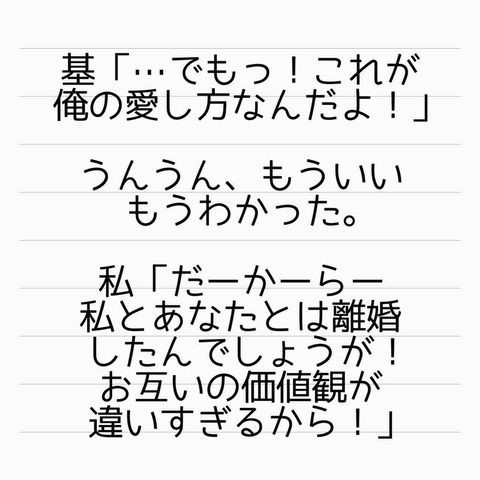 基「…でもっ！これが
俺の愛し方なんだよ！」
うんうん、もういい
もうわかった。
私「だーかーらー
私とあなたとは離婚
したんでしょうが！
お互いの価値観が
違いすぎるから！」